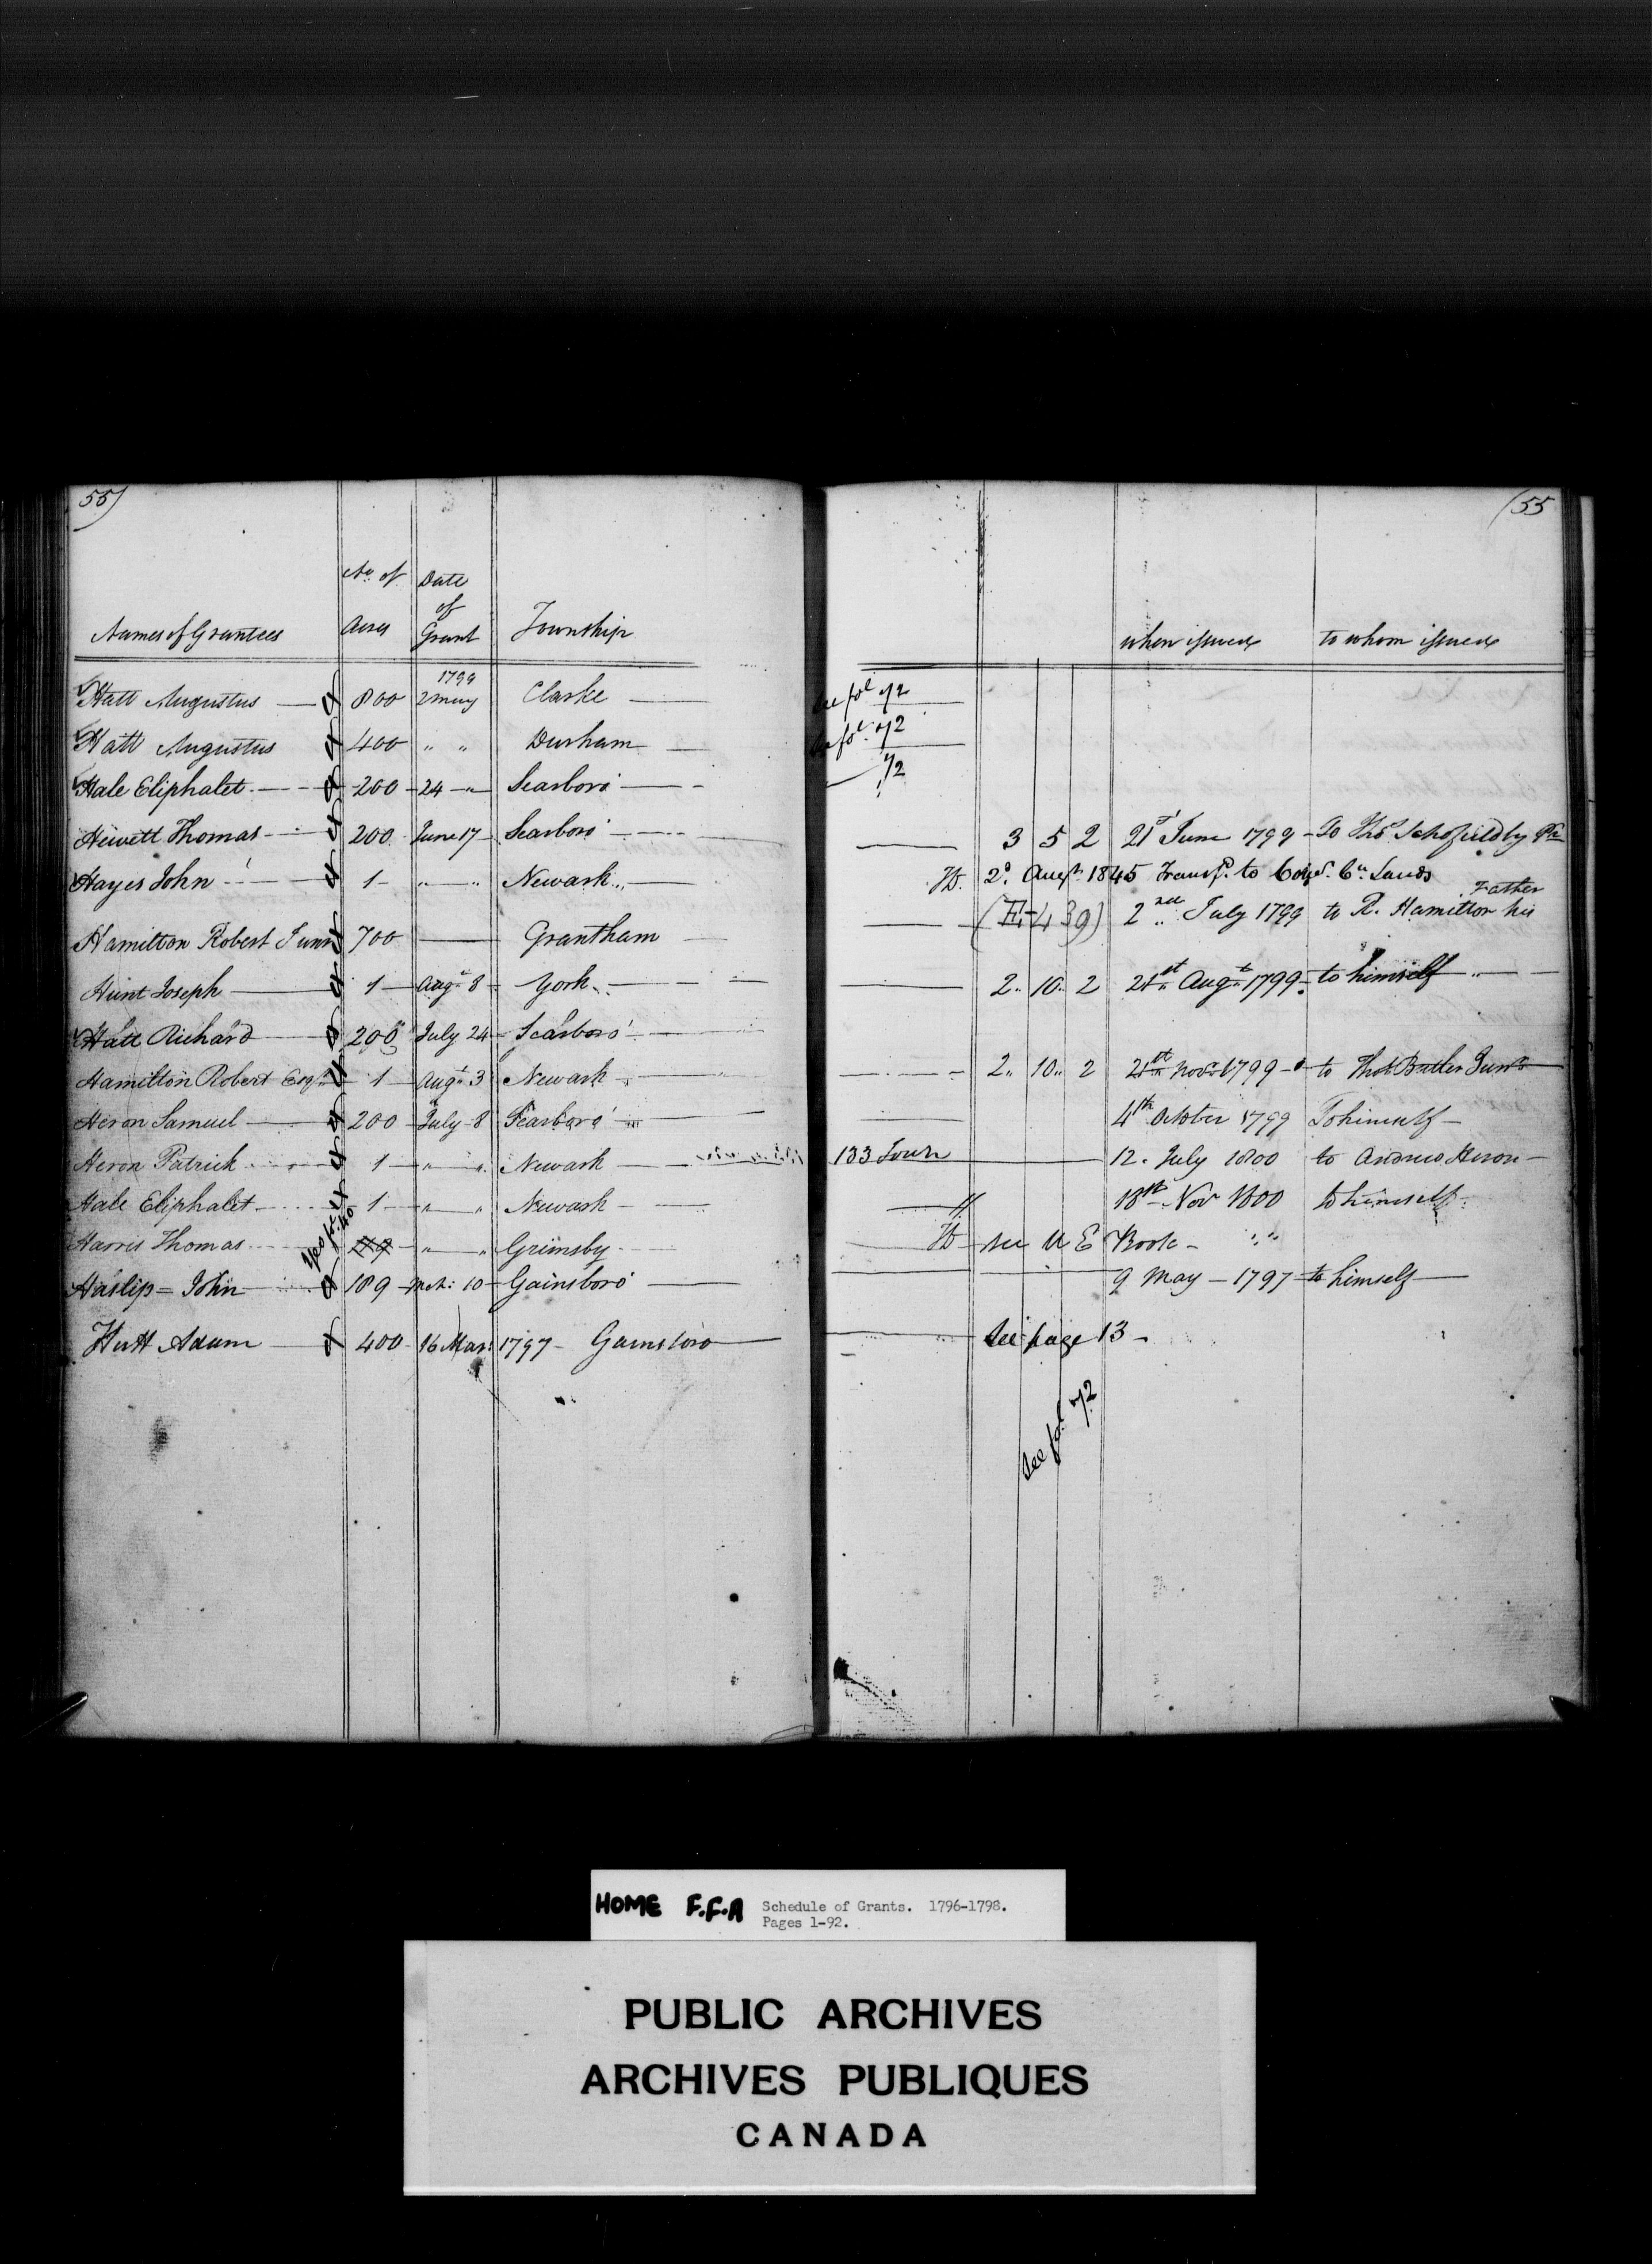 55)
(55
Names of Grantees No. of Acres Date of Grant Township when issued to whom issued
1799
Hatt Augustus 800 2 May Clarke See fol 72
Hatt Augustus 400 " " Durham See fol. 72
Hale Eliphalet 200 24 " Scarboro' 72
Hewett Thomas 200 June 17 Scarboro' 3 5 2 21st June 1799 To Thos Schofield by
Hayes John 1 " " Newark 2d. Augt 1845 Transf. to Lands
Hamilton Robert Junr 700 Grantham 2nd July 1799 to R. Hamilton his Father
Hunt Joseph 1 Augt 8 York 2 10 2 21st Augt 1799 to himself
Hatt Richard 200 July 24 Scarboro'
Hamilton Robert Esqr 1 Augt 3 Newark 2 10 2 21st Novr 1799 to Thos Butler Junr
Heron Samuel 200 July 8 Scarboro' 4th October 1799 To himself
Heron Patrick 1 " " Newark 133 Town 12. July 1800 to Andrew Heron
Hale Eliphalet 1 " " Newark 18th Nov 1800 to himself
Harris Thomas " " Grimsby see U E Book " "
Haslip = John 189 Mch: 10 Gainsboro' 9 May 1797 to himself
Hutt Adam 400 16 Mar: 1797 Gainsboro See page 13
See fol 72
HOME F.F.A Schedule of Grants. 1796-1798.
Pages 1-92.
PUBLIC ARCHIVES
ARCHIVES PUBLIQUES
CANADA